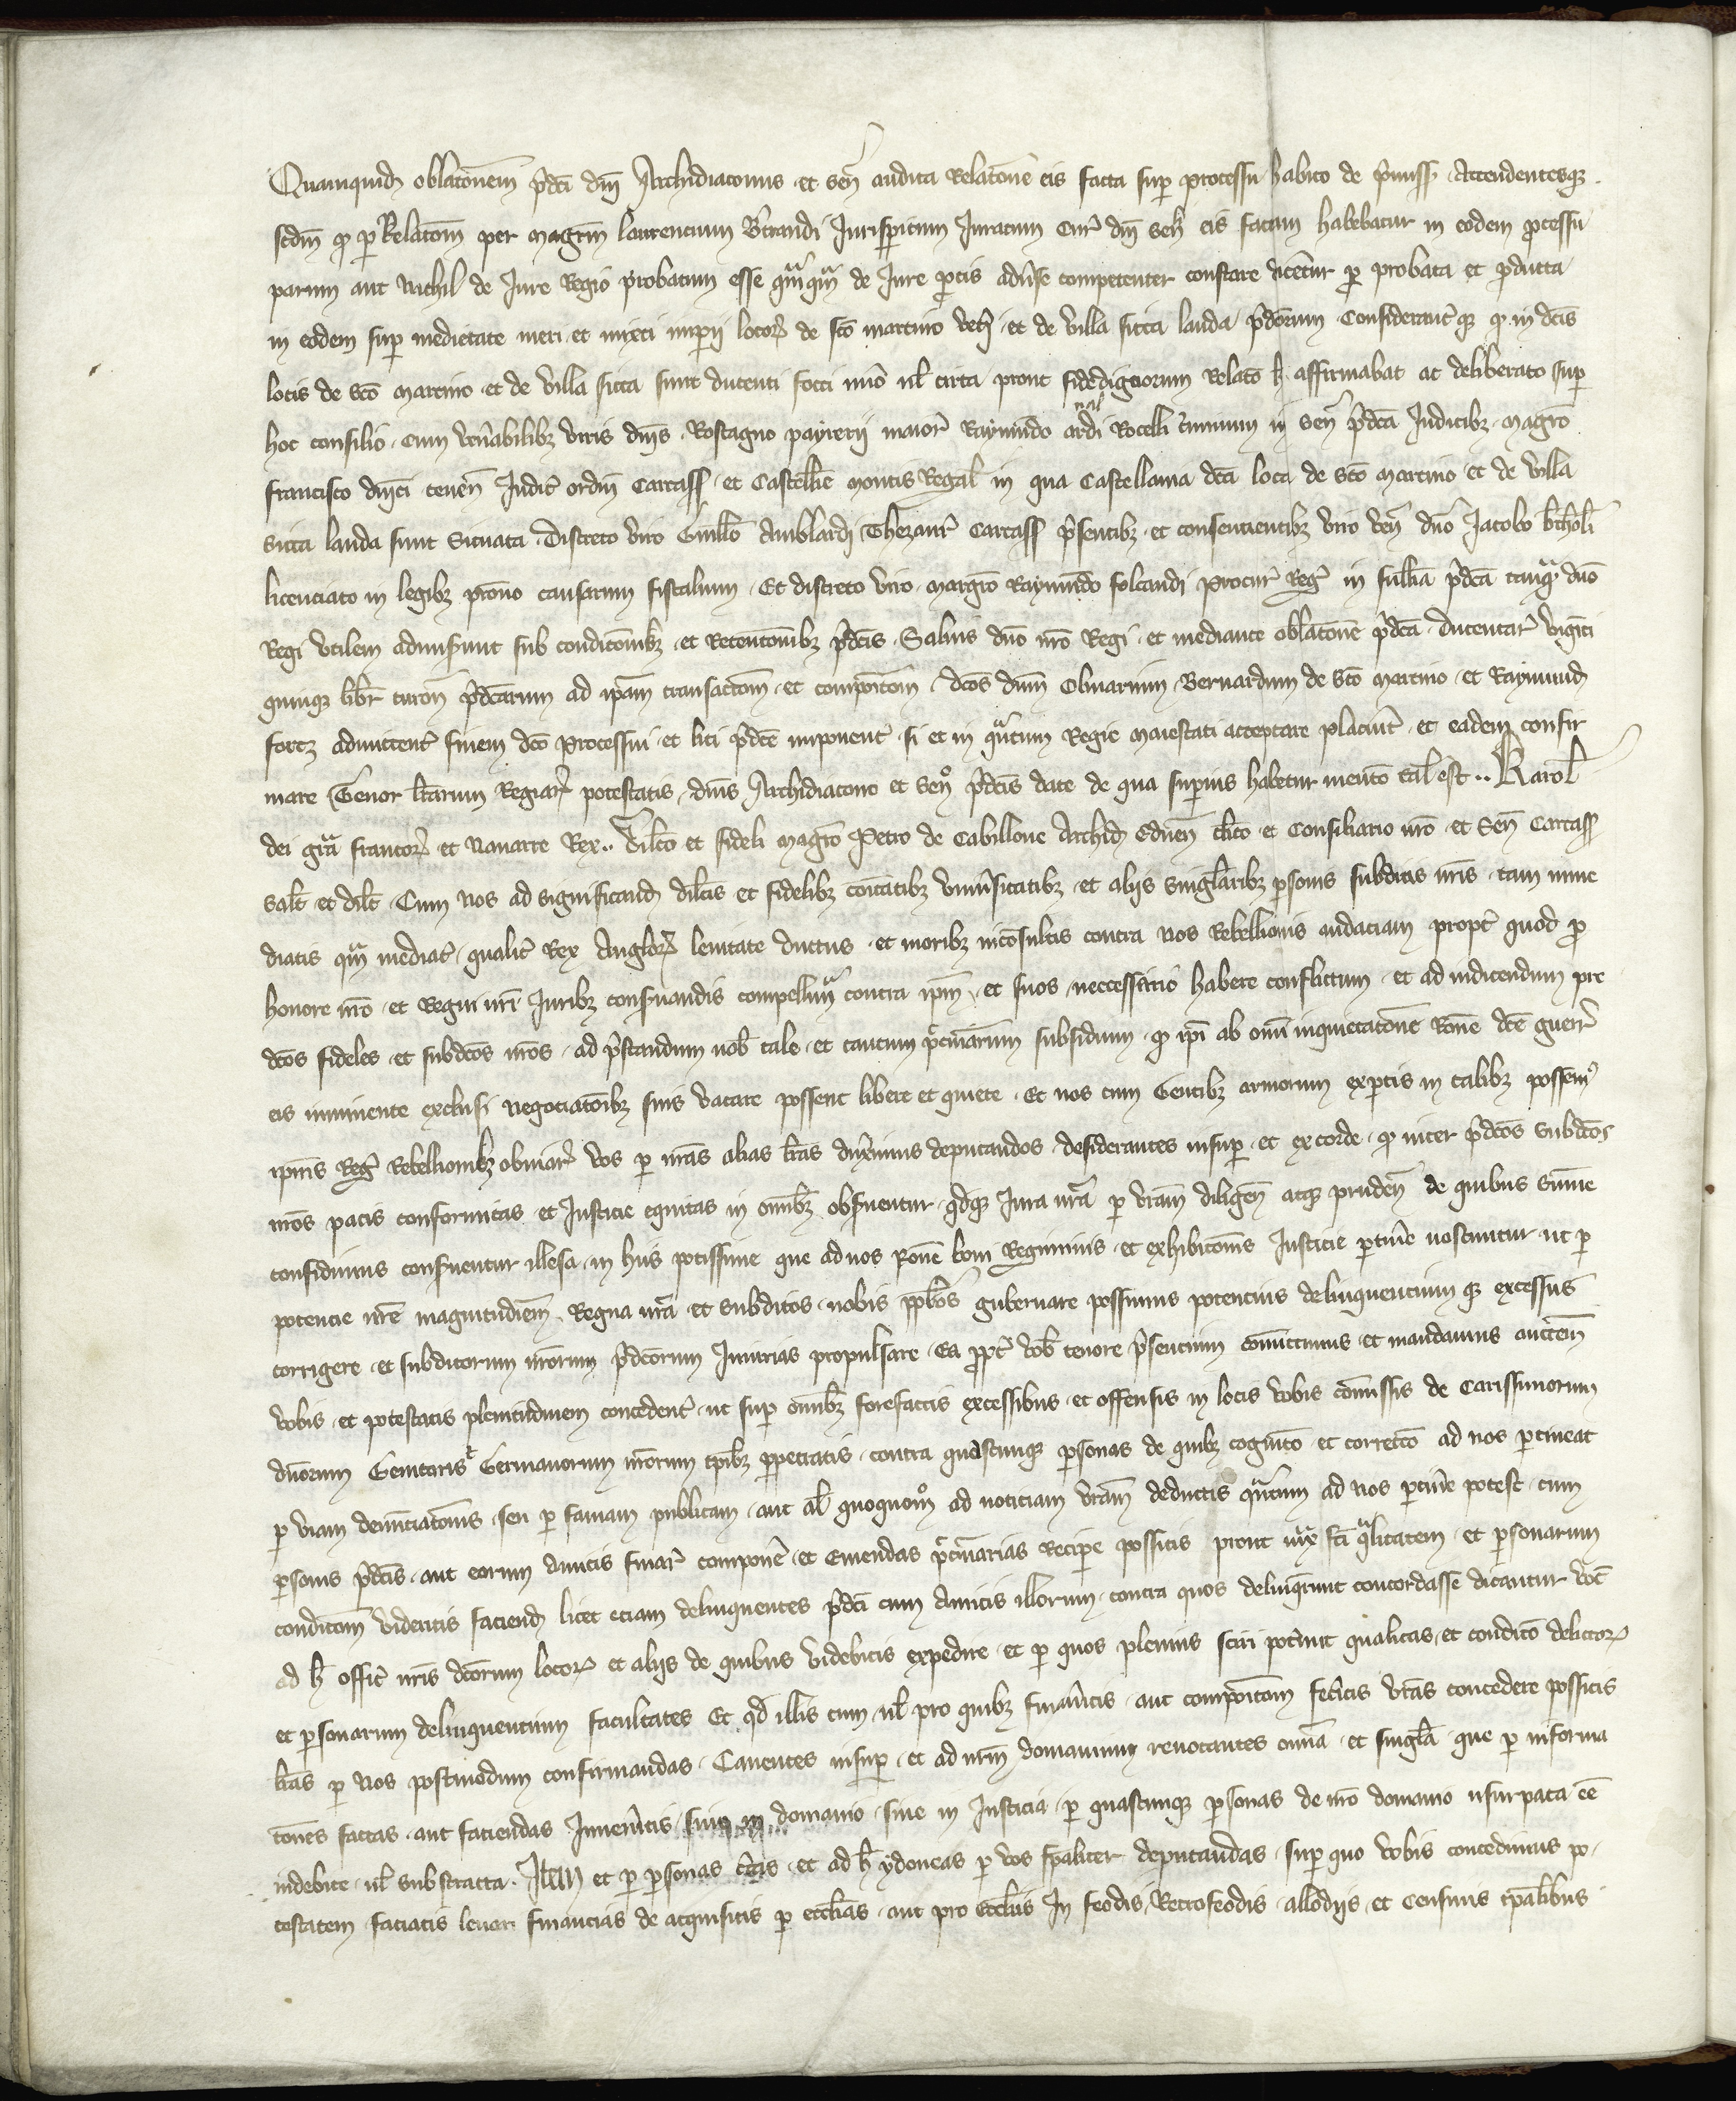 Quamquid oblatōnem p̄dc̄i dn̄i Archidiaconus et sen̄ audita Relatōne eis facta sup̱ processu habito de p̄miss̄ . Attendentesqꝫ
scdm̄ qd̄ p̱ Relatōm per magrm̄ laurencium B̄trandi Jurisp̱itum Juratum Cur̄ dn̄i sen̄ eis factam habebatur in eodem p̱cessu
parum aut Nichil de Jure Regio probatum esse qᵃmqᵃm de Jure p̱tis adūse competenter constare dicet̄ur p̱ probata et p̱ducta
in eodem sup̱ medietate meri et mixti imp̱ij locoꝝ de sc̄o martino vet̄i . et de villa sicca landa p̄dcōrum . Considerant̄ qꝫ qd̄ in dc̄is
locis de sc̄o martino . et de villa sicca sunt ducenti focci nūo ul̄ circa prout fidedignorum Relatō h̄ affirmabat ac deliberato sup̱
hoc consilio . cum ven̄abilibꝫ viris dn̄is . Rostagno payrerij maior̄ Raymūdo arnaldi Rocelli c̄minum in sen̄ p̄dc̄a Judicibꝫ . magrō
francisco dn̄ici tenen̄ Judic̄ ordin̄ Carcass̄ . et Castell̄ie montis Regal̄ in qua Castellania dc̄a loca de sc̄o martino et de villa
sicca landa sunt Situata . Discreto viro Guill̄o Amblardi Thezaur̄ Carcass̄ p̄sentibꝫ . et consentientibꝫ viro ven̄ dn̄o Jacobo b̄tholi
licenciato in legibꝫ p̄rono causarum fiscalium . Et discreto viro . magrō Raymūdo folcaudi procur̄ Reḡ in sn̄llia p̄dc̄a tanqᵃ dn̄o
Regi vtilem admis̄unt sub condicōnibꝫ . et Retentōnibꝫ p̄dc̄is . Saluis dn̄o nr̄o Regi . et mediante oblatōne p̄dc̄a . ducentar̄ viginti
quinqꝫ libr̄ turon̄ p̄dcārum ad ip̄am transactōm . et compoītom . dc̄os dn̄m Oluarium . Bernardum de sc̄o martino . et Raymund̄
forcꝫ admittent̄ finem dc̄o processui . et liti p̄dc̄e imponent̄ . si et in qᵃntum Regie maiestati acceptare placūit . et eadem confir
mare Tenor l̄rarum Regiaꝝ potestatis . dn̄is Archidiacono et sen̄ p̄dc̄is date de qua sup̱ius habetur mentō tal̄ est .. Karol̄
dei gr̄a francoꝝ et Nauarre Rex .. Dil̄co et fideli magrō Petro de Cabillone Archid̄ Eduen̄ cl̄ico et Consiliario nr̄o . et Sen̄ Carcass̄
sal̄t . et dil̄t . Cum nos ad significand̄ dil̄cis et fidelibꝫ cōitatibꝫ vniūsitatibꝫ . et alijs singl̄aribꝫ p̱sonis subditis nr̄is . tam inme
diatis qᵃm mediat̄ . qualit̄ Rex Angloꝝ leuitate ductus . et moribꝫ incōsultis contra nos Rebellionis audaciam propt̄ quod p̱
honore nr̄o . et Regni nr̄i Juribꝫ consr̄uandis compellim̄ contra ip̄m . et suos . neccessario habere conflictum . et ad indicendum pre
dc̄os fideles . et subdc̄os nr̄os . ad p̄standum nob̄ tale . et tantum p̄cuniarum subsidium . qd̄ ip̄i ab om̄i inquietatōne Rōne dc̄e guerr̄
eis imminente exclusi negociatōibꝫ suis vacare possent libere et quiete . Et nos cum Gentibꝫ armorum exp̱tis in talibꝫ possem̄
ip̄ius Reḡ Rebellionibꝫ obuiar̄ vos p̱ nr̄as alias l̄ras duximus deputandos . desiderantes insup̱ . et ex corde . qd̄ inter p̄dc̄os subdc̄os
nr̄os pacis conformitas . et Justicie equitas in om̄ibꝫ obs̱uentur . qd̄qꝫ Jura nr̄a p̱ vr̄am diligen̄ atqꝫ pruden̄ de quibus sum̄e
confidimus cons̱uentur illesa . in hijs potissime que ad nos rōne boni Regiminis . et exhibitōnis Justicie p̱tin̄e noscuntur . ut p̱
potencie nr̄e magnitudiem̄ . Regna nr̄a . et subditos . nobis pp̄l̄os gubernare possimus potencius delinquencium qꝫ excessus
corrigere . et subditorum nr̄orum p̄dcōrum Jniurias propulsare . Ea ppt̄ vob̄ tenore p̄sencium com̄ittimus . et mandamus auctem̄
vobis . et potestatis plenitudinem concedent̄ . ut sup̱ om̄ibꝫ forefactis excessibus . et offensis in locis vobis com̄issis de Carissimorum
dn̄orum Genitoris et Germanorum nr̄orum tp̄ibꝫ p̱petratis . contra quascunqꝫ p̱sonas de quibꝫ cognitō . et correctō ad nos p̱tineat
p̱ viam denūciatōnis . seu p̱ famam publicam . aut al̄ quoquom̊ ad noticiam vr̄am deductis qᵃntum ad nos p̱tin̄e potest . cum
p̱sonis p̄dc̄is . aut eorum amicis finar̄ compon̄e . et Emendas p̄cuniarias Recip̱e possitis prout iuxᵃ fc̄i qᵃlitatem . et p̱sonarum
condicōm videritis faciend̄ licet eciam delinquentes p̄dc̄i cum amicis illorum . contra quos delinq̄runt concordasse dicantur voc̄
ad h̄ offic̄ nr̄is dcōrum locoꝝ et alijs de quibus videbitis expedire . et p̱ quos plenius sciri potūit qualitas . et condicō delictoꝝ
et p̱sonarum delinquencium facultates Et qd̄ illis cum . ul̄ pro quibꝫ finaūitis . aut compoītom fec̄itis vr̄as concedere possitis
l̄ras p̱ nos postmodum confirmandas . Cauentes insup̱ . et ad nr̄m domanium reuocantes om̄ia . et singl̄a . que p̱ informa
tōnes factas . aut faciendas Jnuen̄itis . siue in domanio . siue in Justicia . p̱ quascunqꝫ p̱sonas de nr̄o domanio usurpata ēe
indebite . ul̄ substracta . Jtem et p̱ p̱sonas c̄tas . et ad h̄ ydoneas p̱ vos sp̄aliter deputandas . sup̱ quo vobis concedimus po-
testatem . faciatis leuari financias de acquisitis p̱ eccl̄ias . aut pro eccl̄iis In feodis, Retrofeodis . allodijs . et Censiuis tp̄alibus